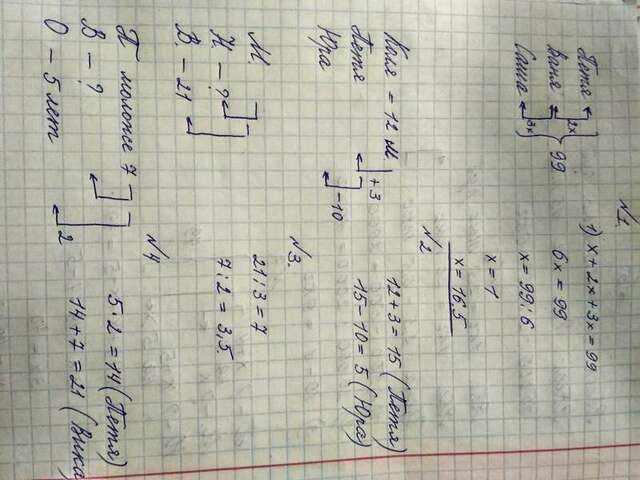 №1.
Петя 2x 1) x + 2x + 3x = 99
Ваня 99 6x = 99
Саша 3x x = 99 : 6
x = 1
x = 16.5
№2
Коля = 12 м +3 12 + 3 = 15 (Петя)
Петя -10 15 - 10 = 5 (Юра)
Юра
№3.
М.
Н. - ? 21 : 3 = 7
В. - 21 7 : 2 = 3,5.
№4
П моложе 7 5 · 2 = 14 (Петя)
В - ? 14 + 7 = 21 (Вика)
О - 5 лет 2